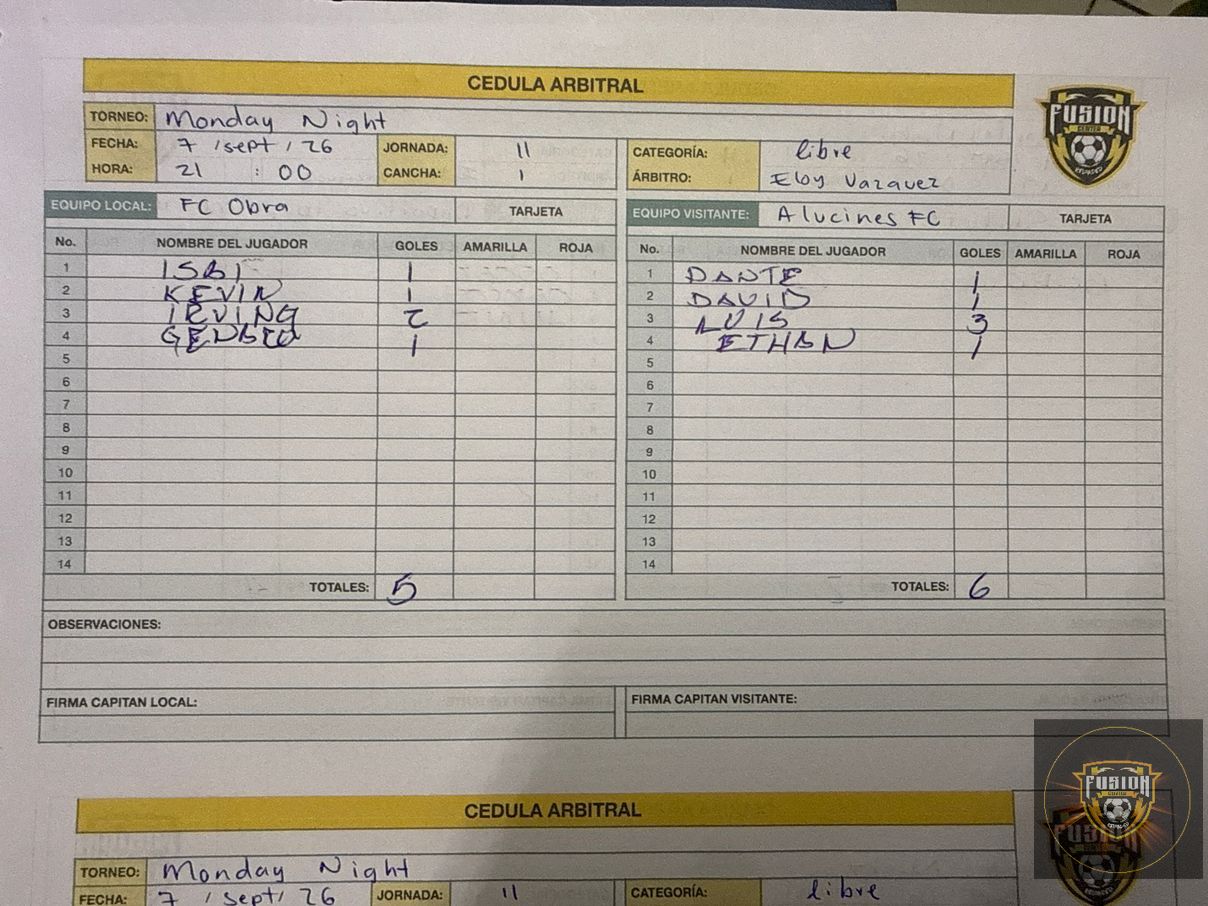 CEDULA ARBITRAL
FUSION
CENTER
TORNEO: Monday Night
FECHA: 7 / sept / 26 JORNADA: 11 CATEGORÍA: libre
HORA: 21 : 00 CANCHA: 1 ÁRBITRO: Eloy Vazquez
EQUIPO LOCAL: FC Obra TARJETA EQUIPO VISITANTE: Alucines FC TARJETA
No. NOMBRE DEL JUGADOR GOLES AMARILLA ROJA No. NOMBRE DEL JUGADOR GOLES AMARILLA ROJA
1 ISBI 1 1 DANTE 1
2 KEVIN 1 2 DAVID 1
3 IRVING 2 3 LUIS 3
4 1 4 ETHAN 1
5 5
6 6
7 7
8 8
9 9
10 10
11 11
12 12
13 13
14 14
TOTALES: 5 TOTALES: 6
OBSERVACIONES:
FIRMA CAPITAN LOCAL: FIRMA CAPITAN VISITANTE:
FUSION
CEDULA ARBITRAL
FUSION
TORNEO: Monday Night
FECHA: 7 / sept / 26 JORNADA: 11 CATEGORÍA: libre